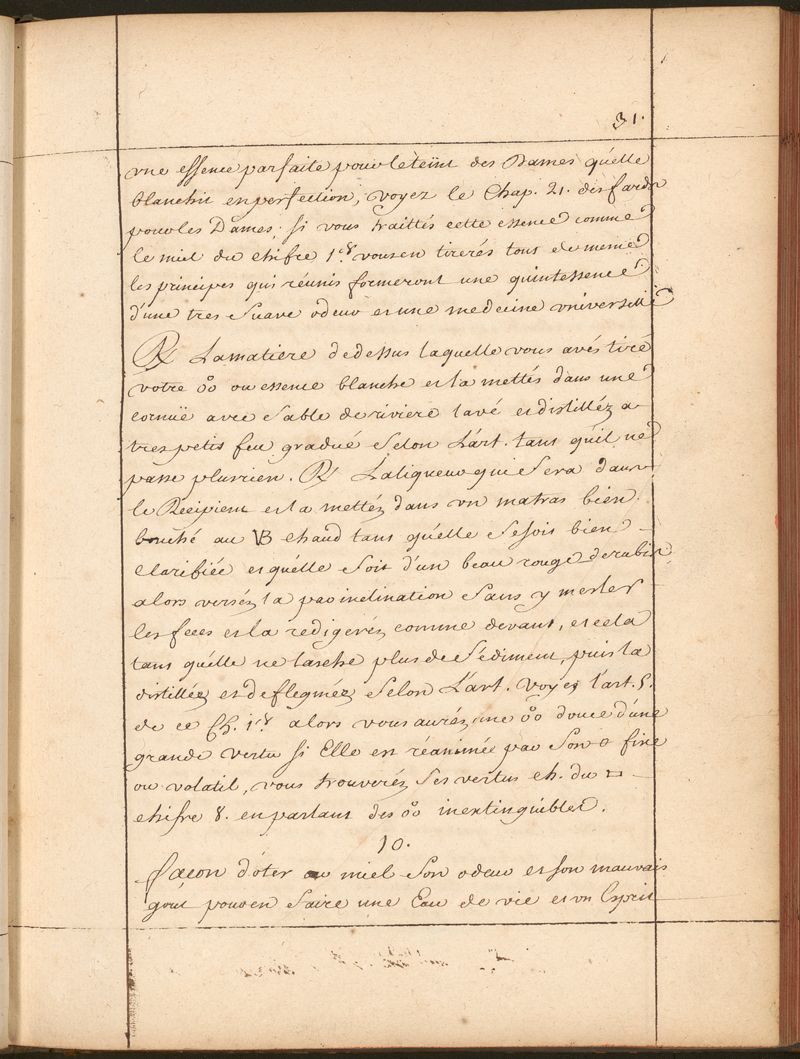 31.
vne essence parfaite pour le teint des Dames qu'elle
blanchit en perfection, voyez le Chap. 21. des fards
pour les Dames; si vous traittés cette essence comme
le miel du chifre 1.er vous en tirerés tout de meme
les principes qui réunis formeront une quintessence
d'une tres suave odeur et une medecine vniverselle
℞ La matiere de dessus laquelle vous avés tiré
votre o°o ou essence blanche et la mettés dans une
cornuë avec sable de riviere lavé et distilléz a
tres petit feu gradué selon L'art. tant qu'il ne
passe plus rien. ℞ La liqueur qui sera dans
le Recipient et la mettéz dans vn matras bien
bouché au VB chaud tant qu'elle se soit bien
clarifiée et qu'elle soit d'un beau rouge de rubis,
alors verséz la par inclination sans y mesler
les feces et la redigeréz comme devant, et cela
tant qu'elle ne lasche plus de sédiment, puis la
distilléz et deflegméz selon L'art. Voyez l'art. 5.
de ce Ch. 1.er alors vous auréz une o°o douce d'une
grande vertu si Elle est réanimée par son fixe
ou volatil, vous trouveréz ses vertus ch. du □
chifre 8. en parlant des o°o inextinguibles.
10.
Façon d'ôter au miel son odeur et son mauvais
goût pour en faire une Eau de vie et vn Esprit